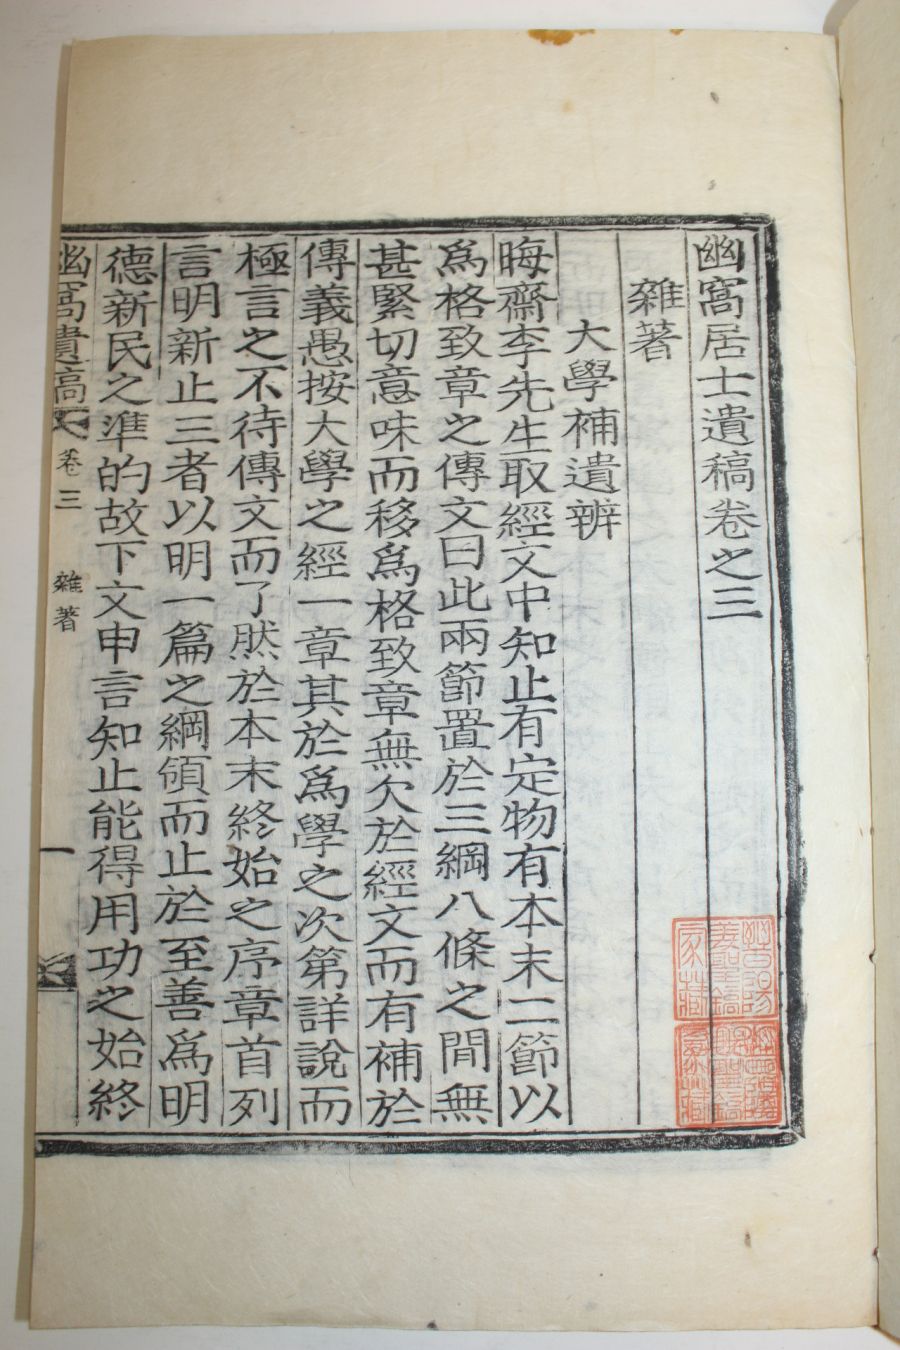 幽窩居士遺稿卷之三
雜著
大學補遺辨
晦齋李先生取經文中知止有定物有本末二節以
爲格致章之傳文曰此兩節置於三綱八條之間無
甚緊切意味而移爲格致章無欠於經文而有補於
傳義愚按大學之經一章其於爲學之次第詳說而
極言之不待傳文而了然於本末終始之序章首列
言明新止三者以明一篇之綱領而止於至善爲明
德新民之準的故下文申言知止能得用功之始終
幽窩遺稿 卷三 雜著 一